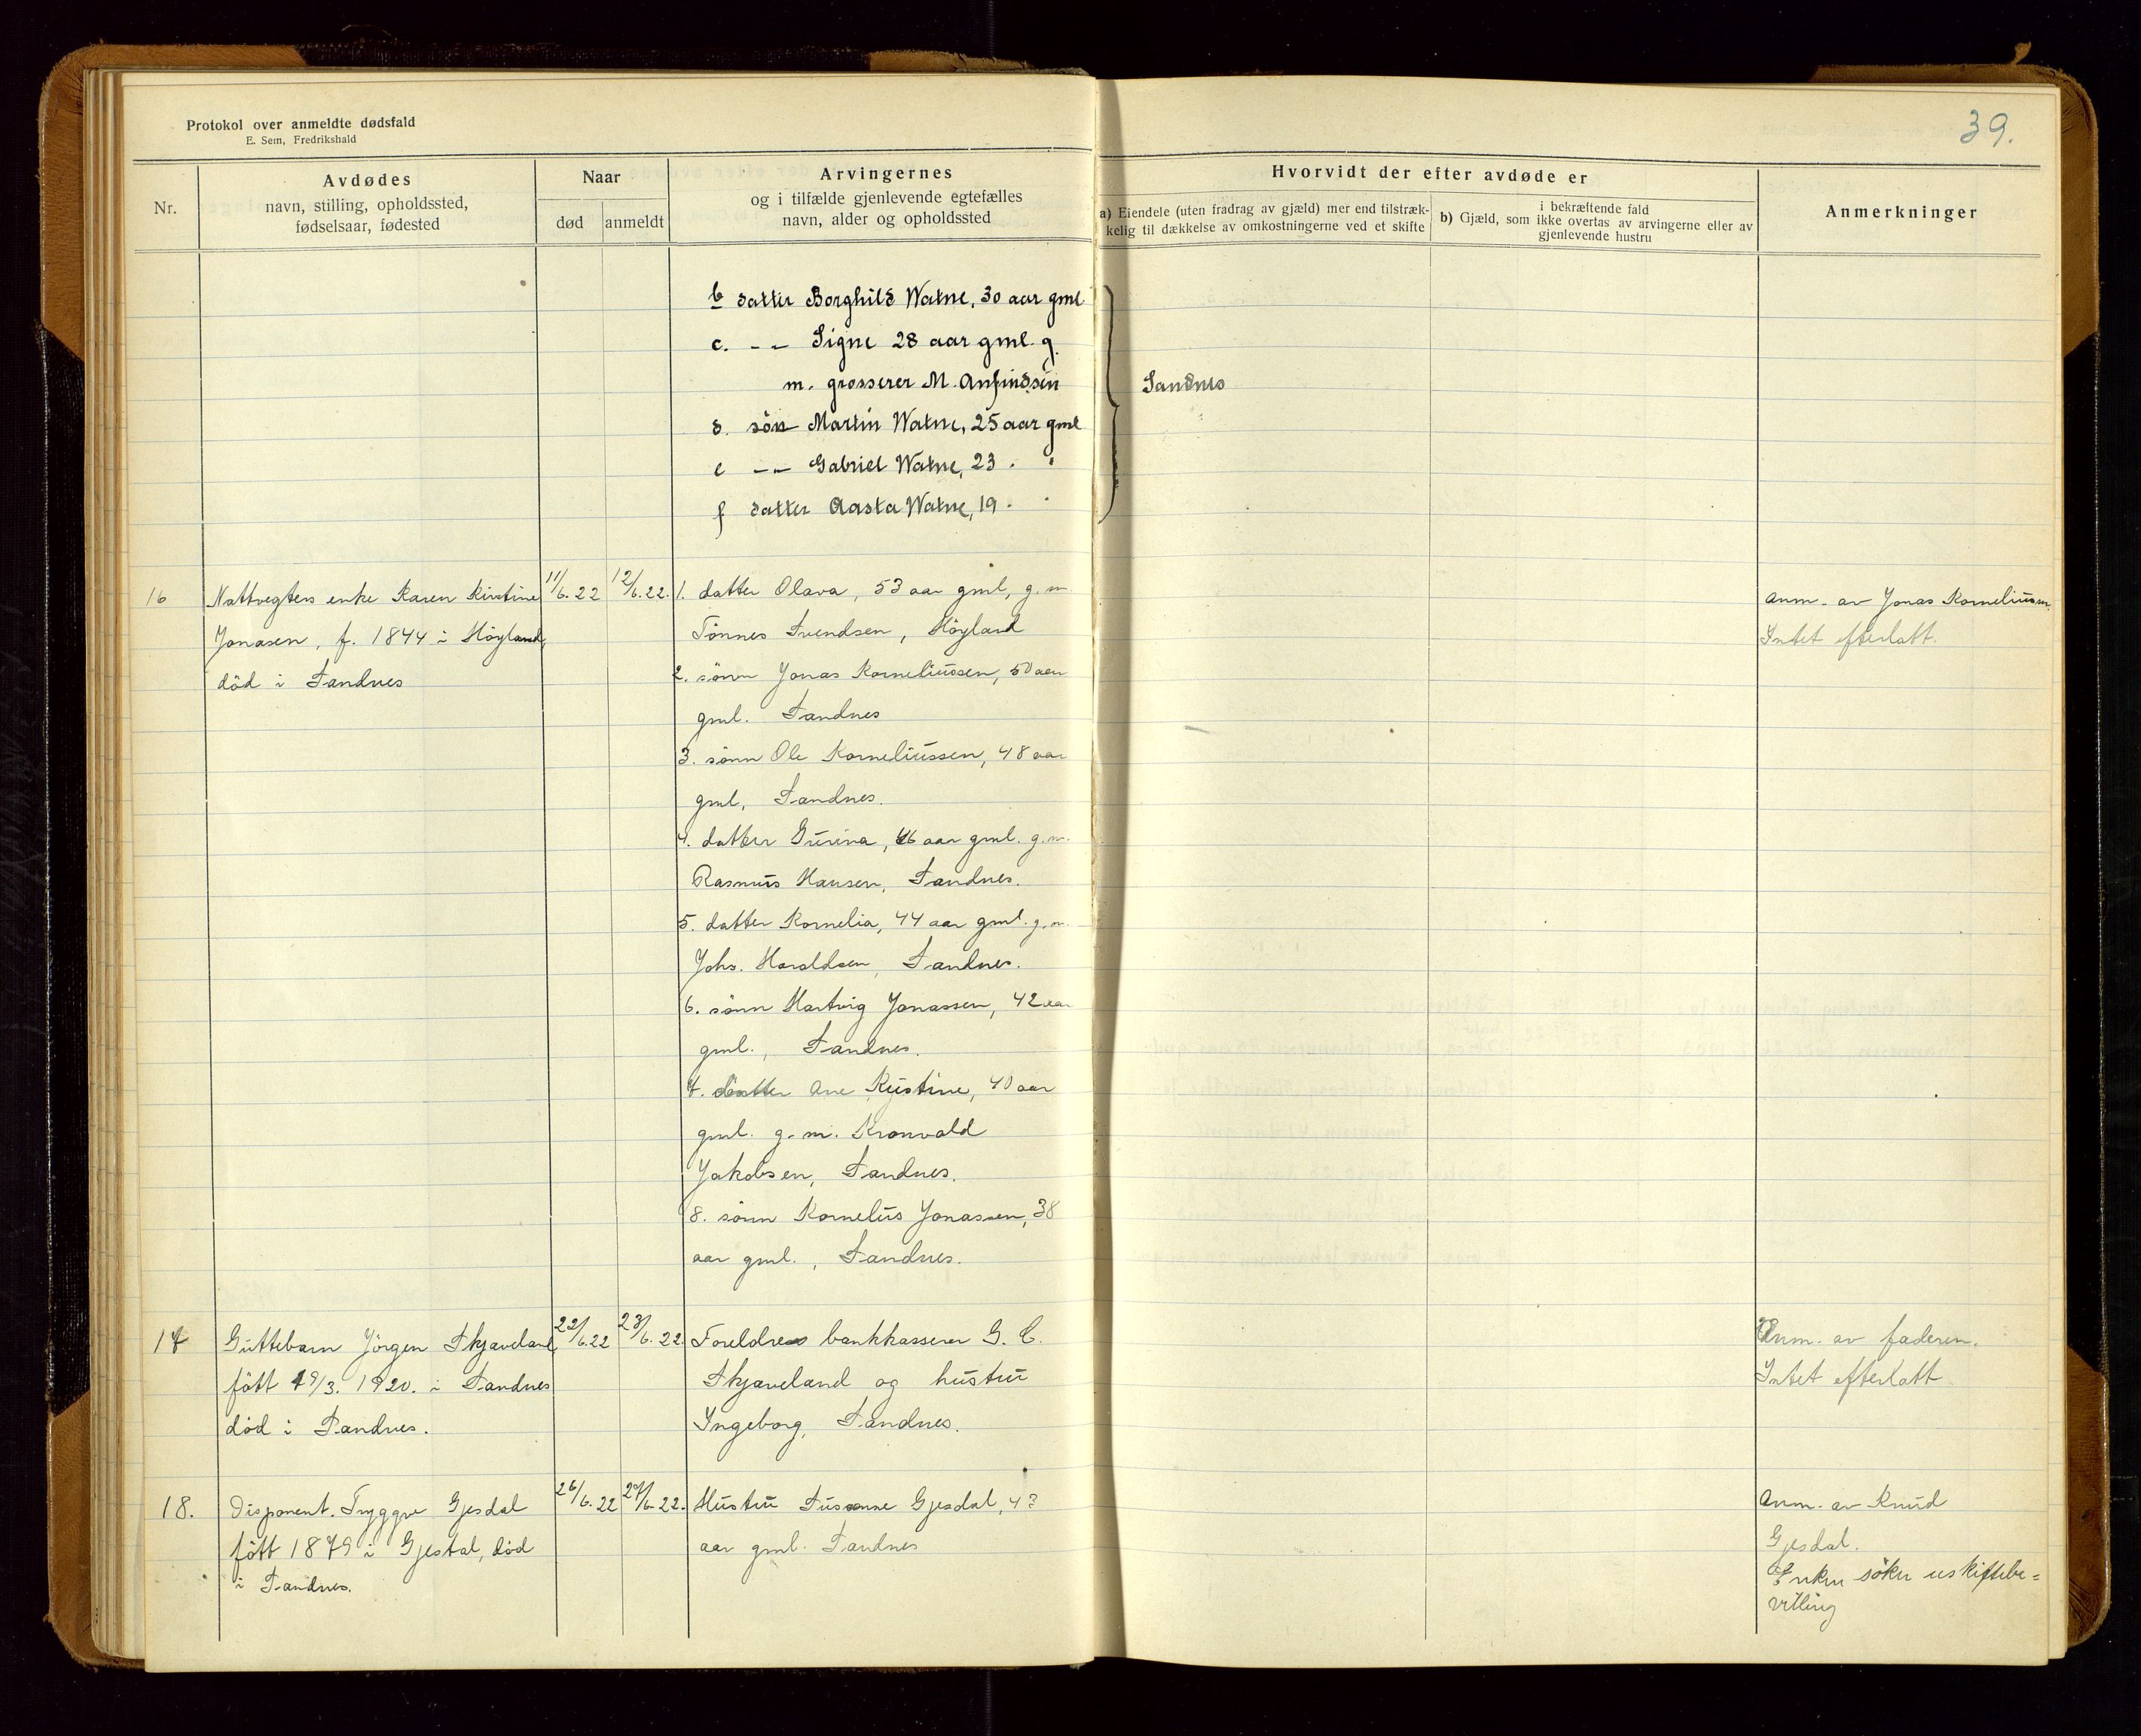 39.
Protokol over anmeldte dødsfald
E. Sem, Fredrikshald
Nr.
Avdødes
navn, stilling, opholdssted,
fødselsaar, fødested
Naar
død
anmeldt
Arvingernes
og i tilfælde gjenlevende egtefælles
navn, alder og opholdssted
Hvorvidt der efter avdøde er
a) Eiendele (uten fradrag av gjæld) mer end tilstræk-
kelig til dækkelse av omkostningerne ved et skifte
i bekræftende fald
b) Gjæld, som ikke overtas av arvingerne eller av
gjenlevende hustru
Anmerkninger
b datter Borghild Watne, 30 aar gml
c. -"- Signe 28 aar gml. g.
m. grosserer M. Anfindsen
d. søn Martin Watne, 25 aar gml
e -"- Gabriel Watne, 23 . "
f datter Aasta Watne, 19 . "
Sandnes
16
Nattvegters enke Karen Kirstine
Jonasen, f. 1844 i Höyland,
död i Sandnes
11/6.22
12/6.22.
1. datter Olava, 53 aar gml, g.m.
Tönnes Svendsen, Höyland
2. sönn Jonas Korneliussen, 50 aar
gml. Sandnes
3. sönn Ole Korneliussen, 48 aar
gml, Sandnes.
4. datter Gurina, 46 aar gml. g.m.
Rasmus Hansen, Sandnes.
5. datter Kornelia, 44 aar gml. g.m.
Johs. Haraldsen, Sandnes.
6. sönn Hartvig Jonassen, 42 aar
gml., Sandnes.
7. datter Ane Kirstine, 40 aar
gml. g.m. Kronvald
Jakobsen, Sandnes.
8. sönn Kornelius Jonassen, 38
aar gml., Sandnes.
Anm. av Jonas Korneliussen.
Intet efterlatt.
17
Guttebarn Jörgen Skjæveland
fött 19/3. 1920. i Sandnes
död i Sandnes.
22/6.22
23/6.22.
Foreldre bankkasserer G. C.
Skjæveland og hustru
Ingeborg, Sandnes.
Anm. av faderen.
Intet efterlatt
18.
Disponent. Tryggve Gjesdal
fött 1879 i Gjestal, död
i Sandnes.
26/6.22
27/6.22.
Hustru Susanne Gjesdal, 43
aar gml. Sandnes
Anm. av Knud
Gjesdal.
Enken söker uskiftebe=
villing